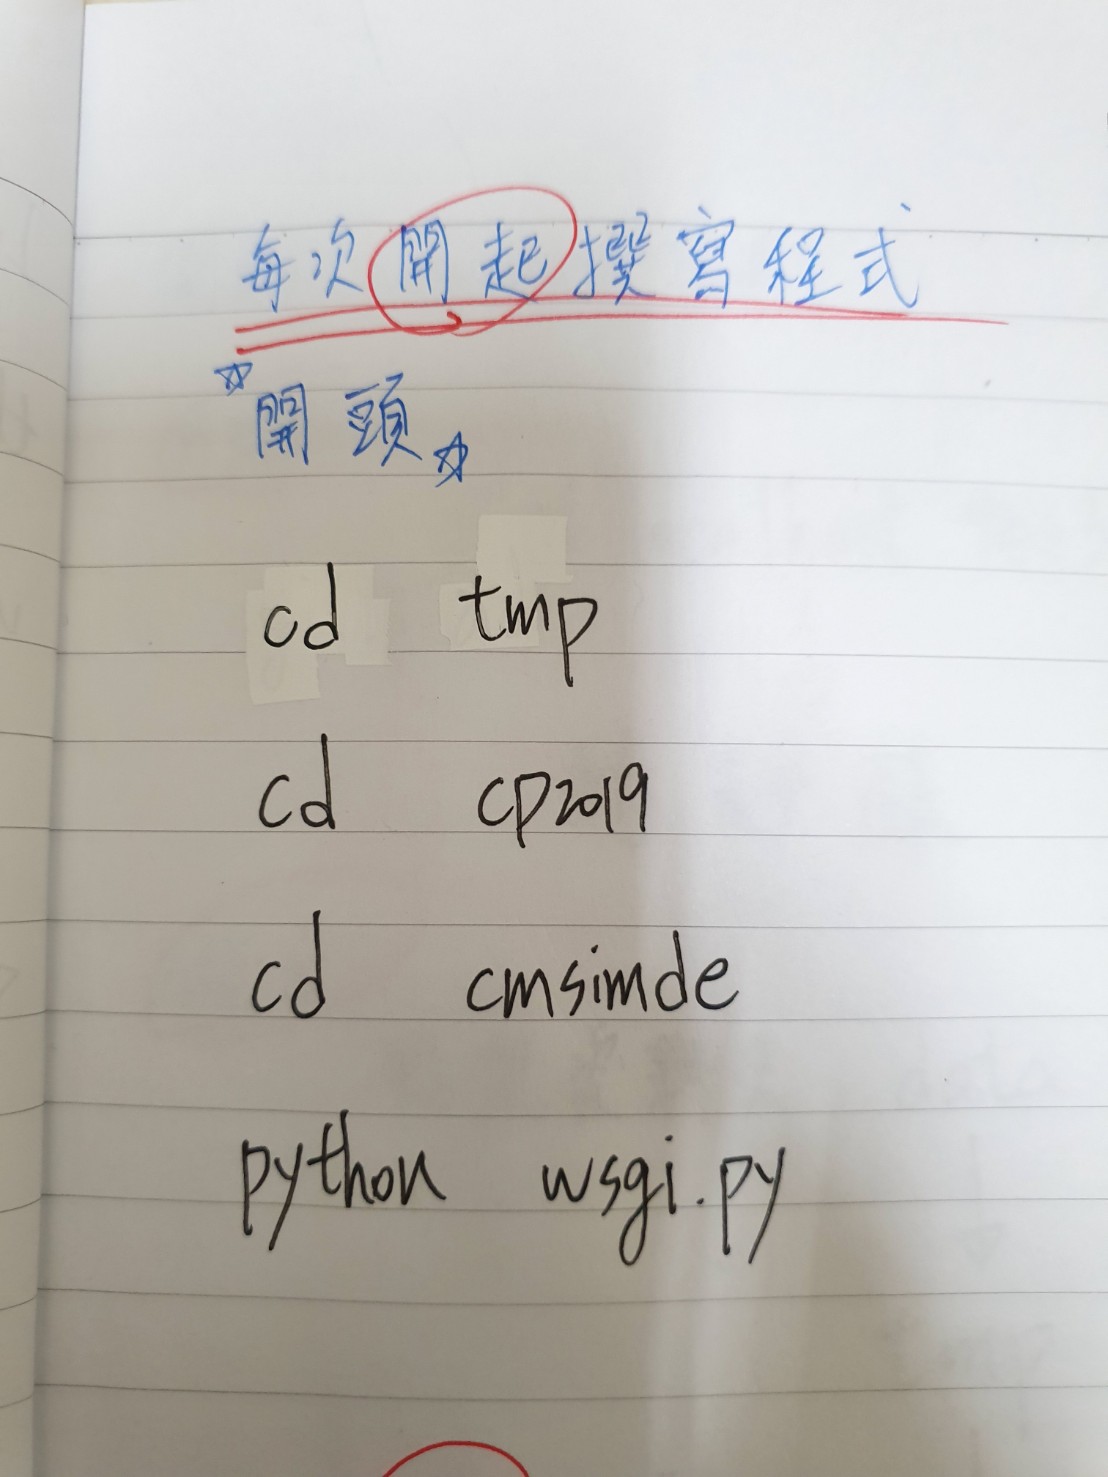 每次開起撰寫程式
☆開頭☆
cd tmp
cd cp2019
cd cmsimde
python wsgi.py